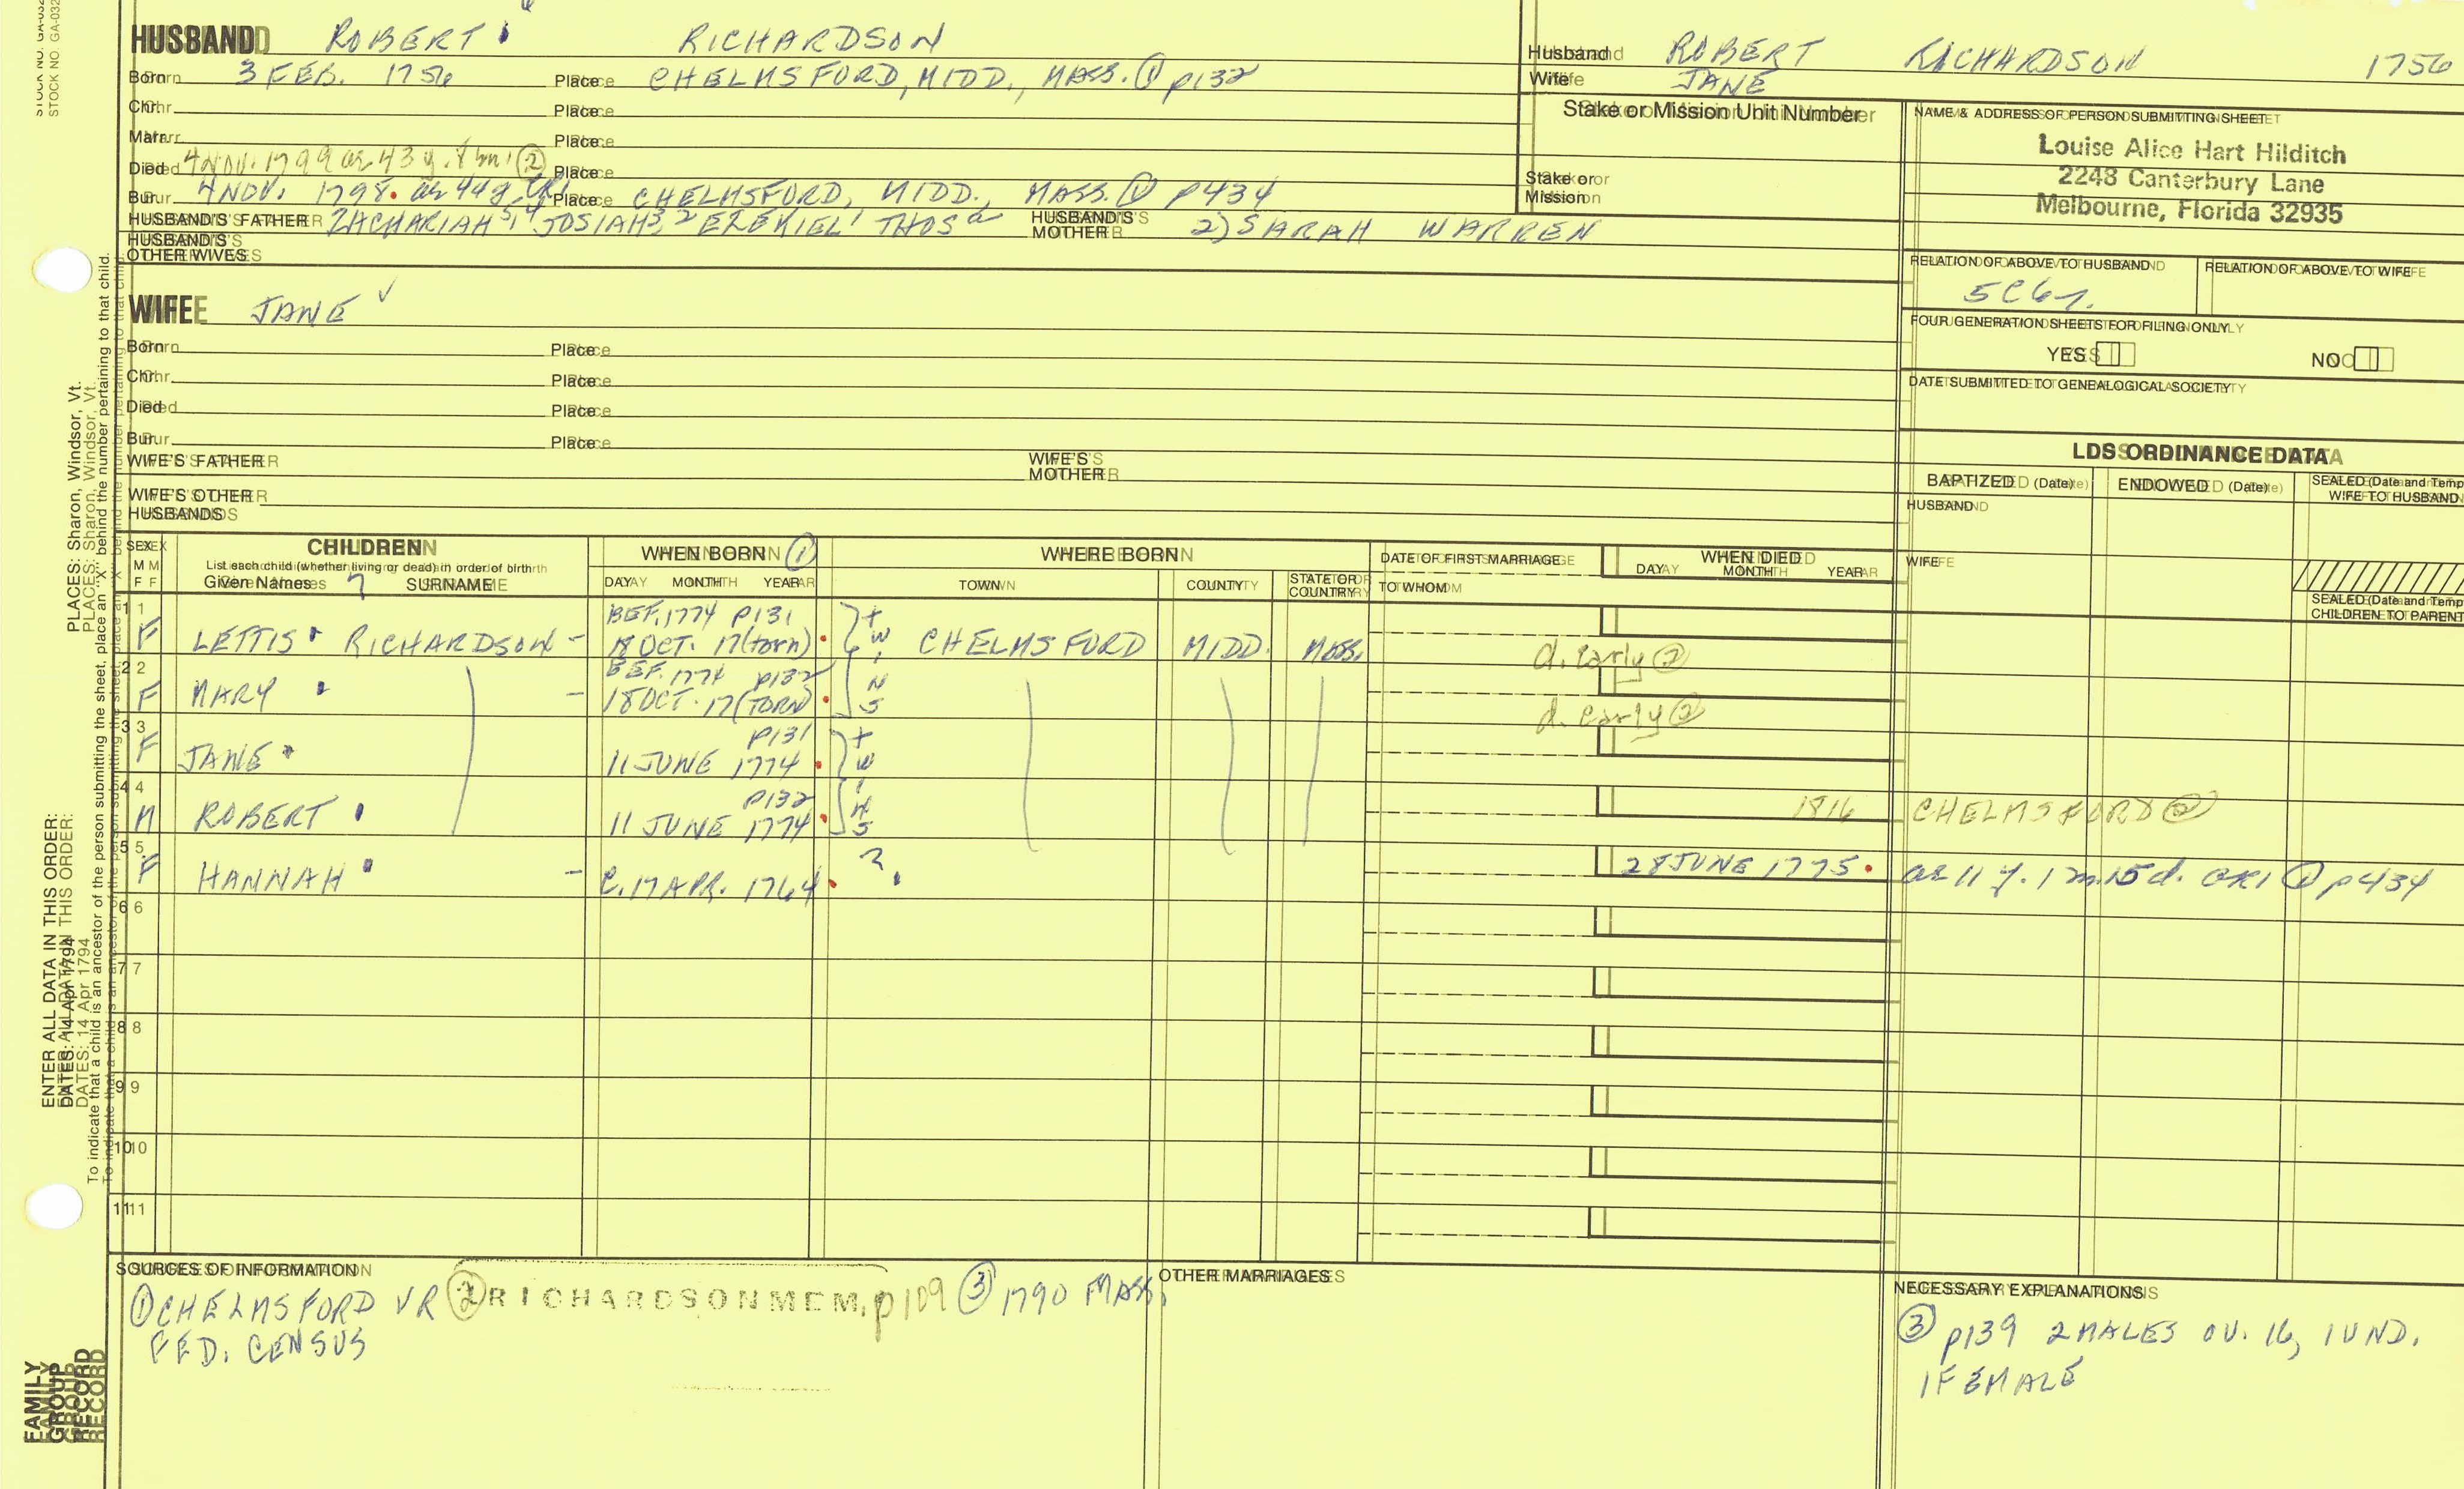 STOCK NO. GA-032
HUSBAND ROBERT RICHARDSON
Born 3 FEB. 1756 Place CHELMSFORD, MIDD., MASS. ① p132
Chr. Place
Marr. Place
Died 4 NOV. 1799 ae 43 y. 8 m. ② Place
Bur. 4 NOV. 1798. ae 44 y. CR1 Place CHELMSFORD, MIDD., MASS. ① p434
HUSBAND'S FATHER ZACHARIAH 5,4 JOSIAH 3,2 EZEKIEL 1 THOS a HUSBAND'S MOTHER 2) SARAH WARREN
HUSBAND'S OTHER WIVES
Husband ROBERT RICHARDSON 1756
Wife JANE
Stake or Mission Unit Number
Stake or Mission
NAME & ADDRESS OF PERSON SUBMITTING SHEET
Louise Alice Hart Hilditch
2248 Canterbury Lane
Melbourne, Florida 32935
RELATION OF ABOVE TO HUSBAND RELATION OF ABOVE TO WIFE
5C6r.
FOUR GENERATION SHEETS FOR FILING ONLY
YES NO
DATE SUBMITTED TO GENEALOGICAL SOCIETY
WIFE JANE ✓
Born Place
Chr. Place
Died Place
Bur. Place
WIFE'S FATHER WIFE'S MOTHER
WIFE'S OTHER HUSBANDS
LDS ORDINANCE DATA
BAPTIZED (Date) ENDOWED (Date) SEALED (Date and Temp
WIFE TO HUSBAND
HUSBAND
WIFE
SEALED (Date and Temp
CHILDREN TO PARENT
SEX M F CHILDREN
List each child (whether living or dead) in order of birth
Given Names SURNAME
WHEN BORN ①
DAY MONTH YEAR
WHERE BORN
TOWN COUNTY STATE OR COUNTRY
DATE OF FIRST MARRIAGE
TO WHOM
WHEN DIED
DAY MONTH YEAR
1 BEF. 1774 p131
F LETTIS RICHARDSON - 18 OCT. 17(torn) twins CHELMSFORD MIDD. MASS. d. early ②
2 BEF. 1774 p132
F MARY - 18 OCT. 17(TORN) d. early ②
3 p131
F JANE 11 JUNE 1774 twins
4 p132
M ROBERT 11 JUNE 1774 1816 CHELMSFORD ②
5
F HANNAH - C. 17 APR. 1764 ? 28 JUNE 1775. ae 11 y. 1 m. 15 d. CR1 ① p434
6
7
8
9
10
11
SOURCES OF INFORMATION
① CHELMSFORD VR ② RICHARDSON MEM, p109 ③ 1790 MASS.
FED. CENSUS
OTHER MARRIAGES
NECESSARY EXPLANATIONS
③ p139 2 MALES OV. 16, 1 UND.
1 FEMALE
PLACES: Sharon, Windsor, Vt.
ENTER ALL DATA IN THIS ORDER:
DATES: 14 Apr 1794
To indicate that a child is an ancestor of the person submitting the sheet, place an "X" behind the number pertaining to that child.
FAMILY GROUP RECORD